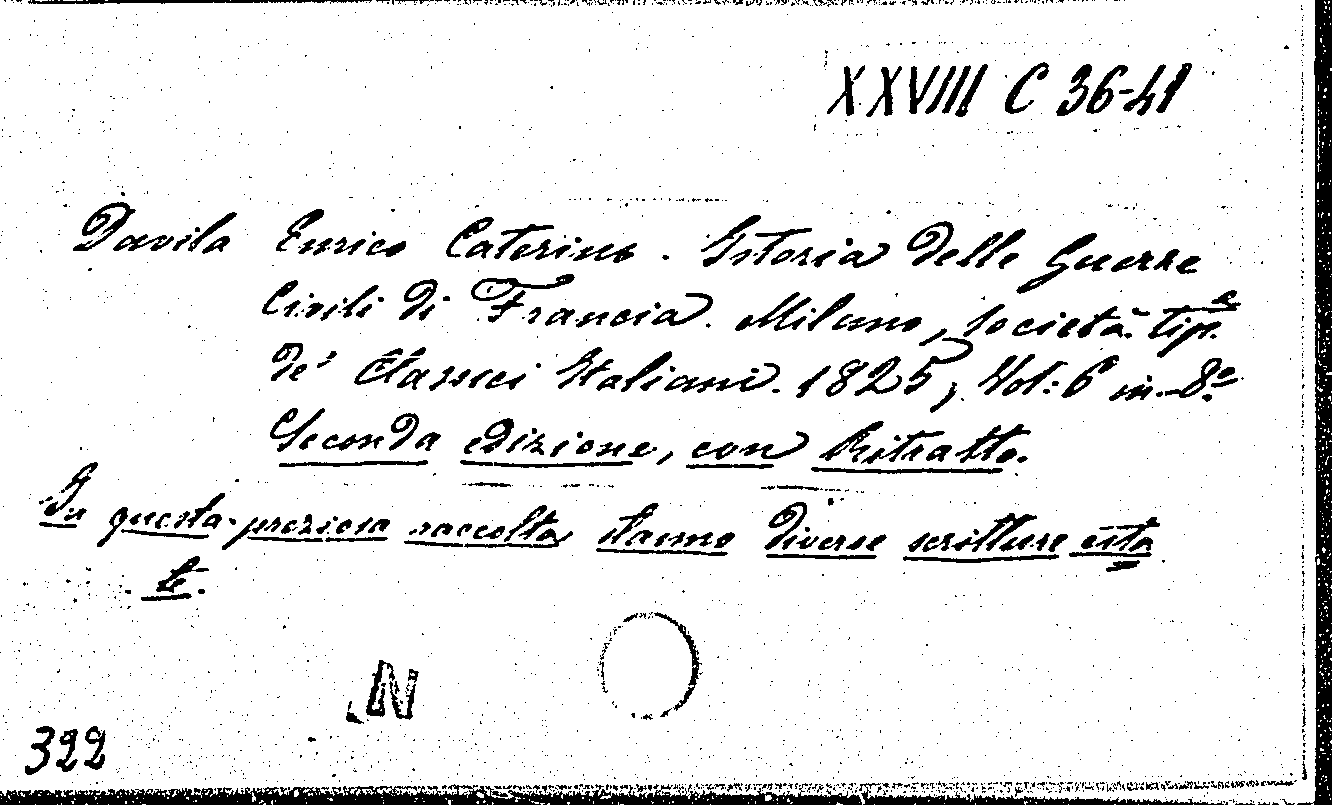 XXVIII C 36-41
Davila Enrico Caterino. Istoria delle Guerre
Civili di Francia. Milano, Società tip.ª
de' Classici Italiani. 1825, Vol: 6 in-8.º
Seconda edizione, con Ritratto.
In questa preziosa raccolta stanno diverse scritture
te.
N
322